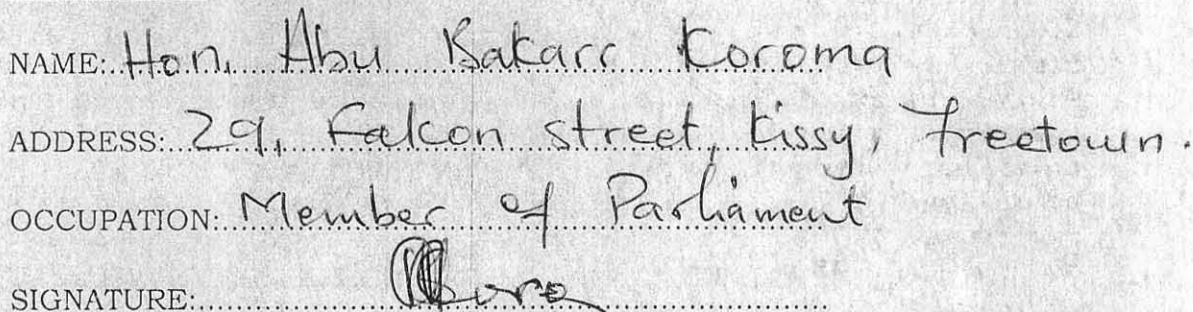 NAME: Hon. Abu Bakarr Koroma
ADDRESS: 29, Falcon street, Kissy, Freetown.
OCCUPATION: Member of Parliament
SIGNATURE: